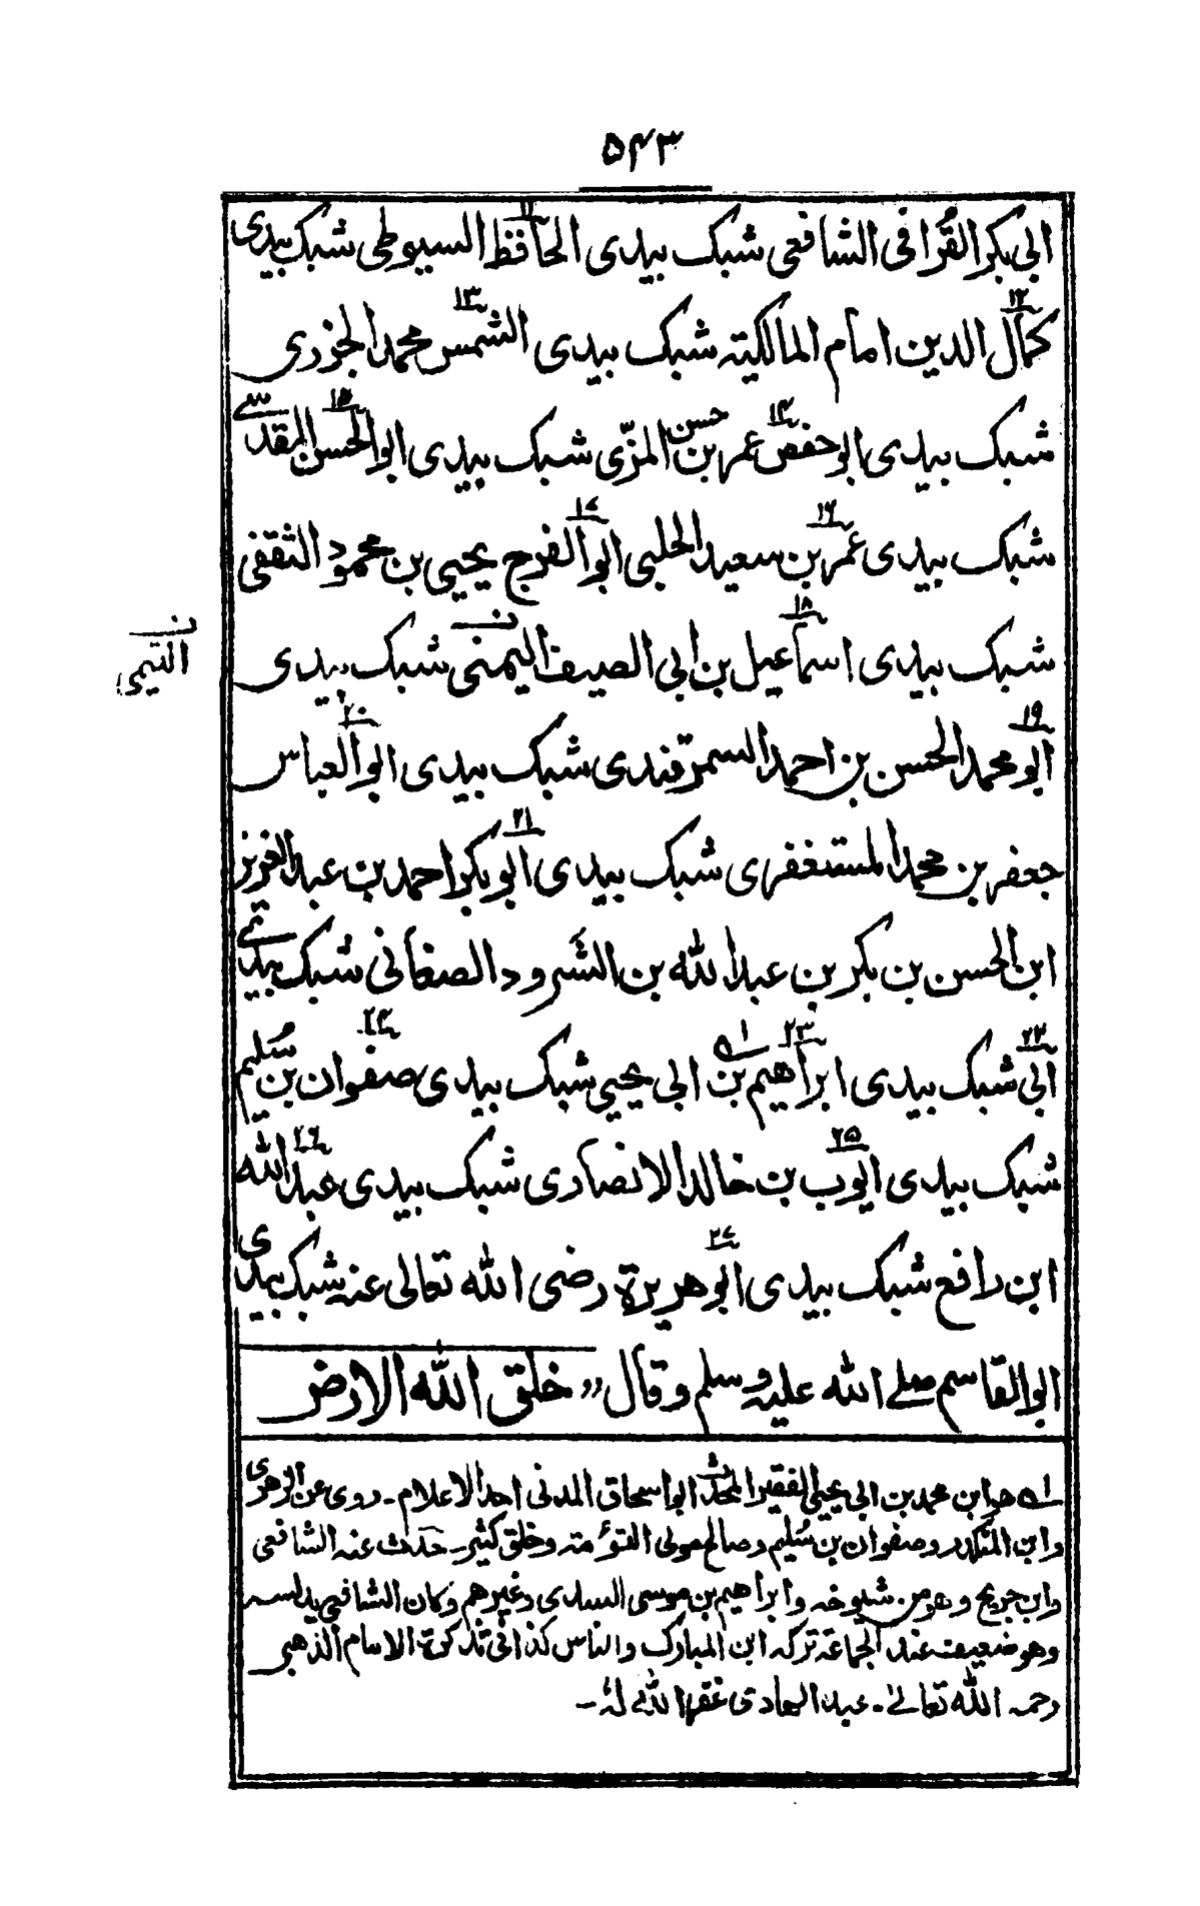 ۵۴۳
ابی بکر القُرافی الشافعی شبک بیدی الحافظ السیوطی شبک بیدی
کمال الدین امام المالکیة شبک بیدی الشمس محمد الجزری
شبک بیدی ابو حفص عمر بن حسن المزّی شبک بیدی ابو الحسن المقدسے
شبک بیدی عمر بن سعید الحلبی ابو الفرج یحیی بن محمود الثقفی
شبک بیدی اسماعیل بن ابی الصیف الیمنی شبک بیدی
التیمی
ابو محمد الحسن بن احمد السمرقندی شبک بیدی ابو العباس
جعفر بن محمد المستغفری شبک بیدی ابو بکر احمد بن عبد العزیز
ابن الحسن بن بکر بن عبد الله بن الشرود الصنعانی شبک بیدے
ابی شبک بیدی ابراهیم بن ابی یحیی شبک بیدی صفوان بن سُلیم
شبک بیدی ایوب بن خالد الانصاری شبک بیدی عبد الله
ابن رافع شبک بیدی ابو هریرة رضی الله تعالی عنه شبک بیدی
ابو القاسم صلے الله علیه وسلم وقال ,, خلق الله الارض
ا؎ هو ابن محمد بن ابی یحیی الفقیر المحدث ابو اسحاق المدنی احد الاعلام۔ روی عن الزهری
وابن المنکدر وصفوان بن سُلیم وصالح مولی التوئمة وخلق کثیر۔ حدث عنه الشافعی
وابن جریج وهو من شیوخه وابراهیم بن موسی السدی وغیرهم وکان الشافعی یدلسه
وهو ضعیف عند الجماعة ترکه ابن المبارک والناس کذا فی تذکرة الامام الذهبی
رحمه الله تعالےٰ۔ عبد الهادی غفر الله له۔